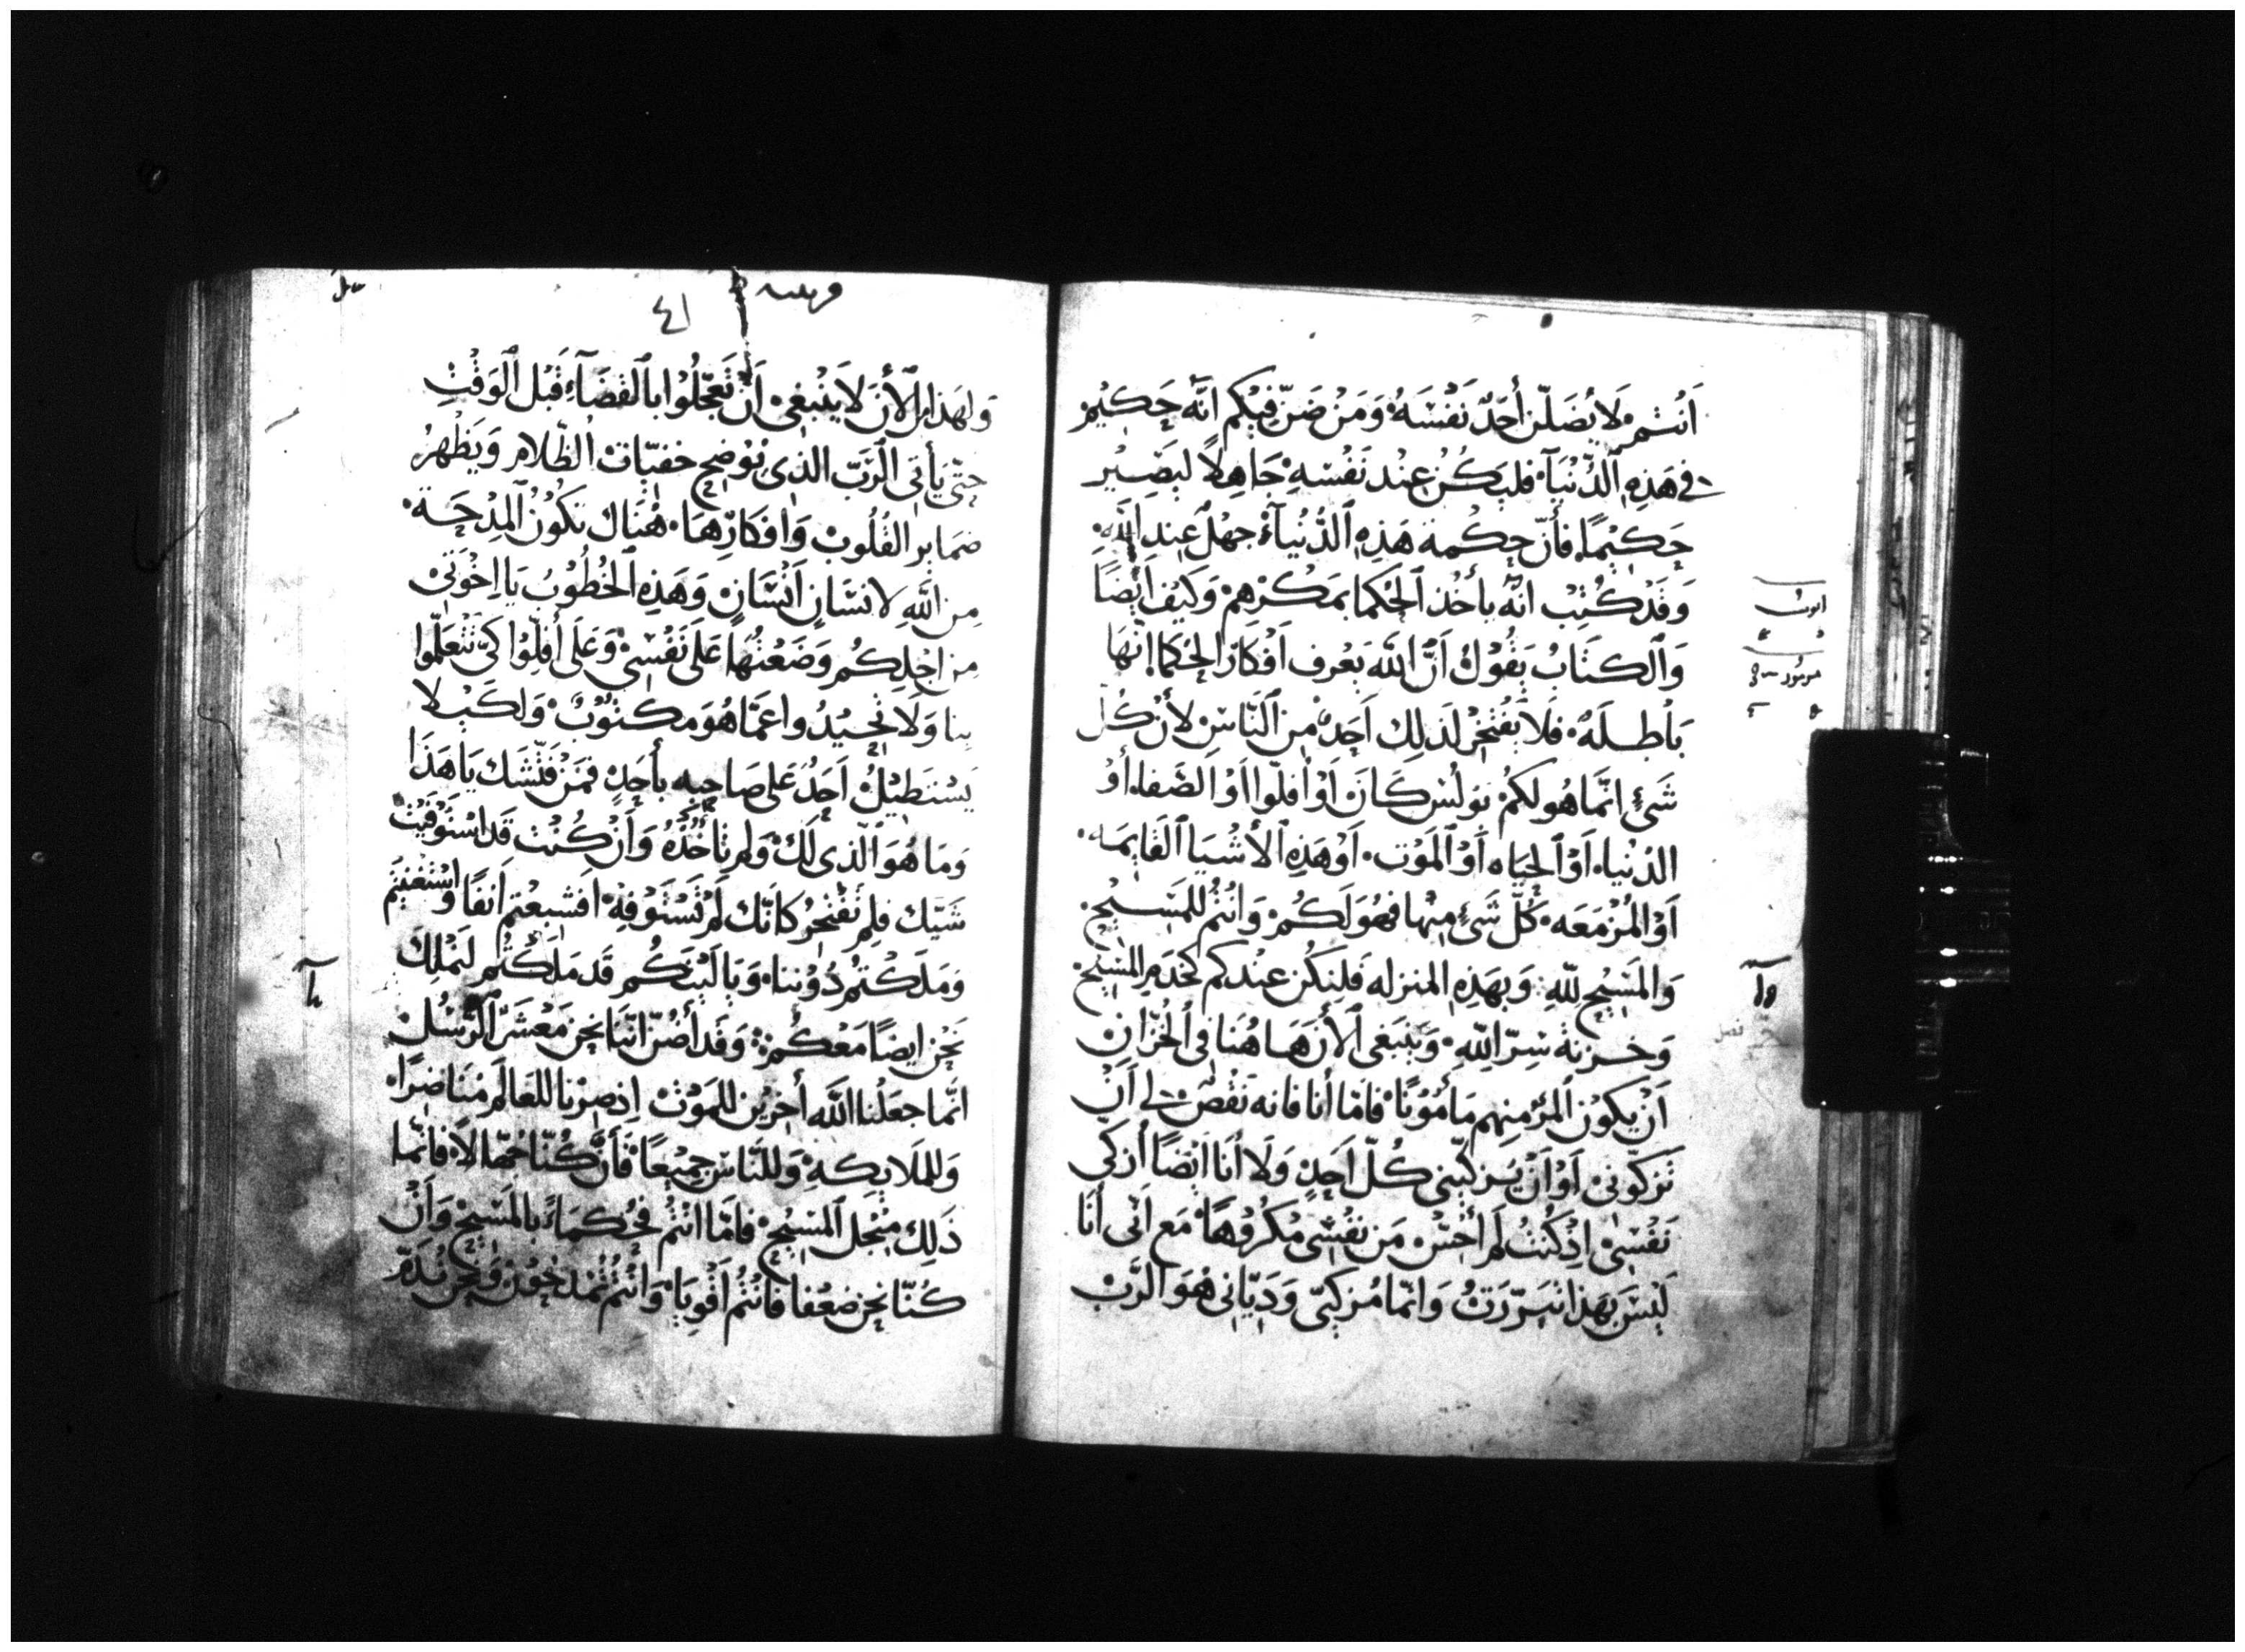 اَنْتُمْ لَا يُضَلّنّ أَحَدٌ نَفْسَهُ وَمَنْ ضَنّ فِيْكم انّه حَكِيْم
في هَذِهِ الدُّنْيَآ فليَكُنْ عِنْد نَفْسهِ جَاهِلاً ليَصِيْر
حَكِيْمًا فأنّ حِكْمة هَذِهِ الدُّنْيَآ جهْل عِندِ اللَّهِ
وَقَدْ كُتِبْ انّه يأخُذ الحُكما بمَكْرِهِمْ وَكَيْف اَيْضًا
وَالكتَابُ يَقُوْل أَنَّ اللَّه يَعْرف اَفْكَار الحُكما انّهَا
بَاْطِلَهْ فَلَا يَفْتَخِرْ لذَلِك اَحَدٌ مِن النَّاسِ لأَنْ كُل
شَيْءٍ انَّمَا هُو لكُمْ بَوْلُسْ كَانَ أَوْ اَفلّوا اَوْ الصَّفا أَوْ
الدُنْيا أَوْ الحيَاه أَوْ المَوْت أَوْ هَذِهِ الأَشْيَا القَايمَه
اَوْ المُزْمَعَه كُلّ شَيْءٍ مِنْها فهُوَ لَكُمْ وَانْتُمْ للمَسِيْح
وَالمَسِيْح للّهِ وَبهَذِهِ المنزله فَليَكُن عِنْدكم كخَدَم المَسِيْح
وَخَزنَة سِرّ اللَّهِ وَيَنْبَغى الأَن هَا هُنَا فى الخُزّان
اَنْ يَكُوْن المَرْ مِنهم مَأمُوْنًا فَامّا أنا فانه نَقْصٌ لي اَنْ
تَزَكّوْنىْ اَوْ اَنْ يُزَكّيْنى كُلّ اَحَدٍ وَلَا أَنَا اَيْضًا اُزكى
نَفْسِىْ اِذْ كُنْتُ لَم أَحِسّ مَن نفْسِى مَكْرُوْهًا مَع اَنّى أَنَا
لَيْسَ بهَذا تبَرّرْتُ وَانّمَا مُزكيّى وَدَيّانى هُوَ الرَّبّ
٤١
وَلهَذا الأَن لَا يَنْبَغى اَنْ تَعجّلُوْا بالقَضَآء قَبْل الوَقْتِ
حتّى يَأتى الرَّبّ الذى يُوْضح خَفيّات الظّلام وَيَظْهرُ
ضمَاير القُلُوبْ وَافْكَارهَا هُنَاك تَكُوْن المِدْحَة
مِن اللَّهِ لانسَانٍ انْسَانٍ وَهَذِهِ الخُطُوْبُ يَا اِخْوَتىْ
مِن اجْلِكُم وَضَعْتُهَا عَلَى نَفْسِىْ وَعَلَى أفلّوْا كَىْ تَتَعَلّموا
بنا وَلَا تَحِيْدُوا عَمّا هُوَ مكْتُوْبْ وَلكَىْ لا
يَسْتَطِيْلُ اَحَدٌ عَلى صَاحِبه بأَحَدٍ فمَنْ فَتّشَك يَا هَذَا
وَمَا هُوَ الّذى لَكْ وَلم تَأْخُذْهُ وَأنْ كُنْت قَد اسْتَوْفَيْتْ
شَيّك فلِم تَفْتَخِرُ كانّك لَمْ تَسْتَوْفِهْ افَشَبِعْتم اَنفًا وَاسْتَغْنيْتُم
وَمَلَكْتُمْ دُوْننا وَيَا لَيْتَكُم قَد مَلَكْتُم لنَمْلِك
نَحْن ايضًا مَعْكُمْ وَقَد أَضُنّ انّنا نحن مَعْشَرَ الرُّسُلْ
انَّما جعَلْنا اللَّه أخرِيْن للمَوْتْ اِذ صِرْنا للعَالَم مْنَاضرًا
وَللمَلايكهِ وَللنَّاسِ جمِيْعًا فَأنْ كُنّا جُهّالاً فانّمَا
ذَلِك مِنْجل المَسِيْح فَامّا انتُمْ فحُكَمَاءٌ بالمَسِيْح وَأَنْ
كُنّا نحن ضعُفا فَانْتُمْ اَقْويَا وَانْتُمْ تُمْدَحُوْن وَنحن نُذَمّ